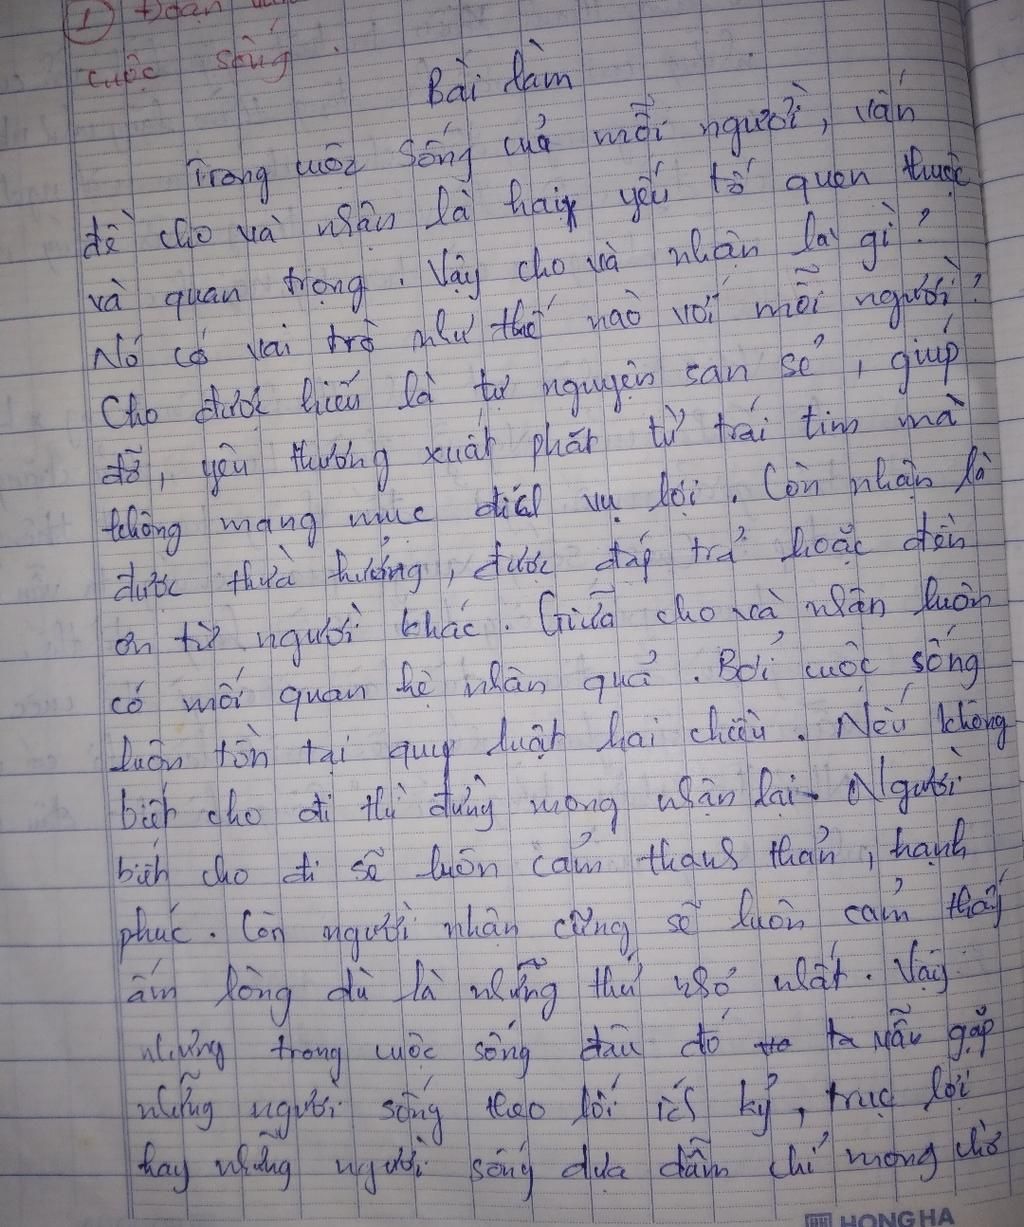 ① Đoạn
cuộc sống.
Bài làm
Trong cuộc sống của mỗi người, vấn
đề cho và nhận là hai yếu tố quen thuộc
và quan trọng. Vậy cho và nhận là gì?
Nó có vai trò như thế nào với mỗi người?
Cho được hiểu là tự nguyện san sẻ, giúp
đỡ, yêu thương xuất phát từ trái tim mà
không mang mục đích vụ lợi. Còn nhận là
được thừa hưởng, được đáp trả hoặc đền
ơn từ người khác. Giữa cho và nhận luôn
có mối quan hệ nhân quả. Bởi cuộc sống
luôn tồn tại quy luật hai chiều. Nếu không
biết cho đi thì đừng mong nhận lại. Người
biết cho đi sẽ luôn cảm thanh thản, hạnh
phúc. Còn người nhận cũng sẽ luôn cảm thấy
ấm lòng dù là những thứ nhỏ nhất. Vậy
nhưng trong cuộc sống đâu đó ta vẫn gặp
những người sống theo lối ích kỷ, trục lợi
hay những người sống dựa dẫm chỉ mong chờ
HONG HA